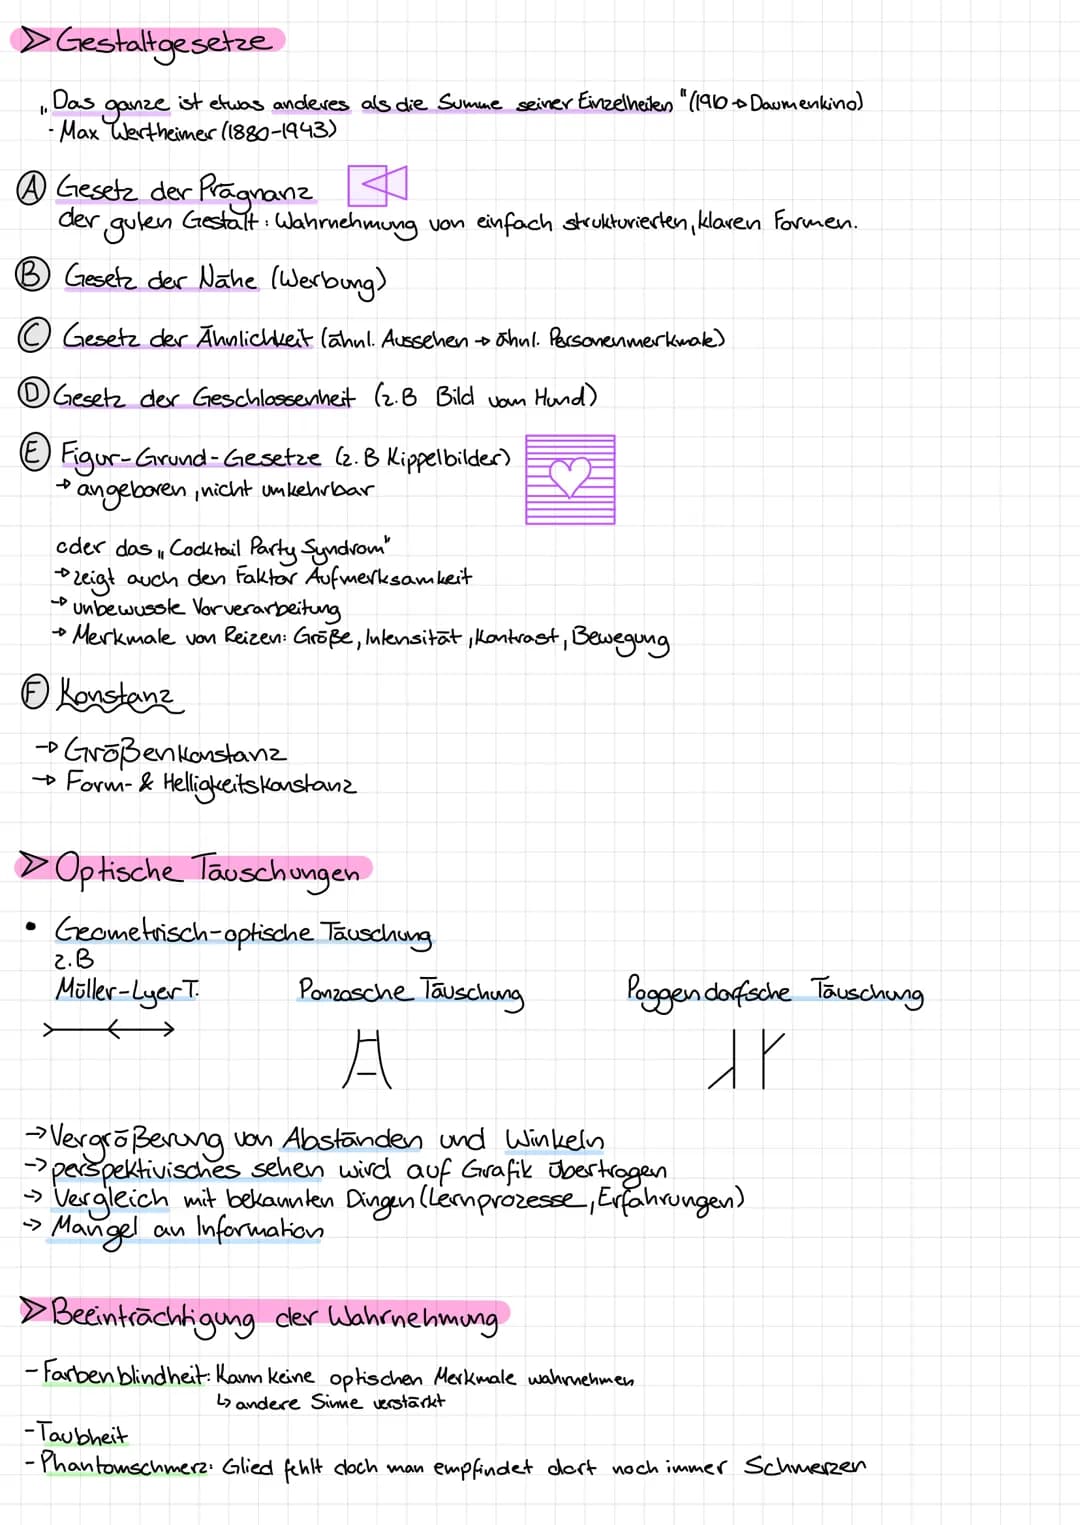 Gestaltgesetze
„Das ganze ist etwas anderes als die Summe seiner Einzelheiten" (1910 → Daumenkino)
- Max Wertheimer (1880-1943)
A Gesetz der Prägnanz
der guten Gestalt: Wahrnehmung von einfach strukturierten, klaren Formen.
B Gesetz der Nähe (Werbung)
C Gesetz der Ähnlichkeit (ähnl. Aussehen → ähnl. Personenmerkmale)
D Gesetz der Geschlossenheit (z.B Bild vom Hund)
E Figur-Grund-Gesetze (z.B Kippelbilder)
→ angeboren, nicht umkehrbar
oder das „Cocktail Party Syndrom"
→ zeigt auch den Faktor Aufmerksamkeit
→ unbewusste Vorverarbeitung
→ Merkmale von Reizen: Größe, Intensität, Kontrast, Bewegung
F Konstanz
→ Größenkonstanz
→ Form- & Helligkeitskonstanz
Optische Täuschungen
• Geometrisch-optische Täuschung
z.B
Müller-Lyer T. Ponzosche Täuschung Poggendorfsche Täuschung
→ Vergrößerung von Abständen und Winkeln
→ perspektivisches sehen wird auf Grafik übertragen
→ Vergleich mit bekannten Dingen (Lernprozesse, Erfahrungen)
→ Mangel an Information
Beeinträchtigung der Wahrnehmung
- Farbenblindheit: Kann keine optischen Merkmale wahrnehmen
↳ andere Sinne verstärkt
- Taubheit
- Phantomschmerz: Glied fehlt doch man empfindet dort noch immer Schmerzen